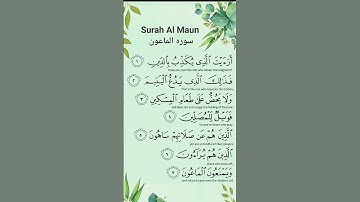 Surah Al Maun
سوره الماعون
أَرَءَيْتَ ٱلَّذِى يُكَذِّبُ بِٱلدِّينِ ١
فَذَٰلِكَ ٱلَّذِى يَدُعُّ ٱلْيَتِيمَ ٢
That is the one who repulses the orphan
وَلَا يَحُضُّ عَلَىٰ طَعَامِ ٱلْمِسْكِينِ ٣
فَوَيْلٌ لِّلْمُصَلِّينَ ٤
ٱلَّذِينَ هُمْ عَن صَلَاتِهِمْ سَاهُونَ ٥
ٱلَّذِينَ هُمْ يُرَآءُونَ ٦
وَيَمْنَعُونَ ٱلْمَاعُونَ ٧